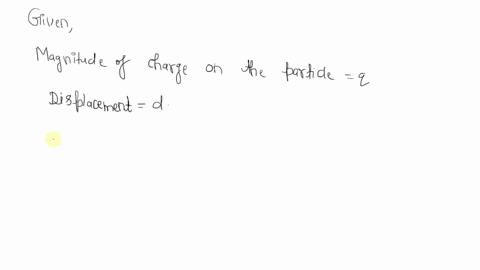 Given,
Magnitude of charge on the particle = q
Displacement = d.